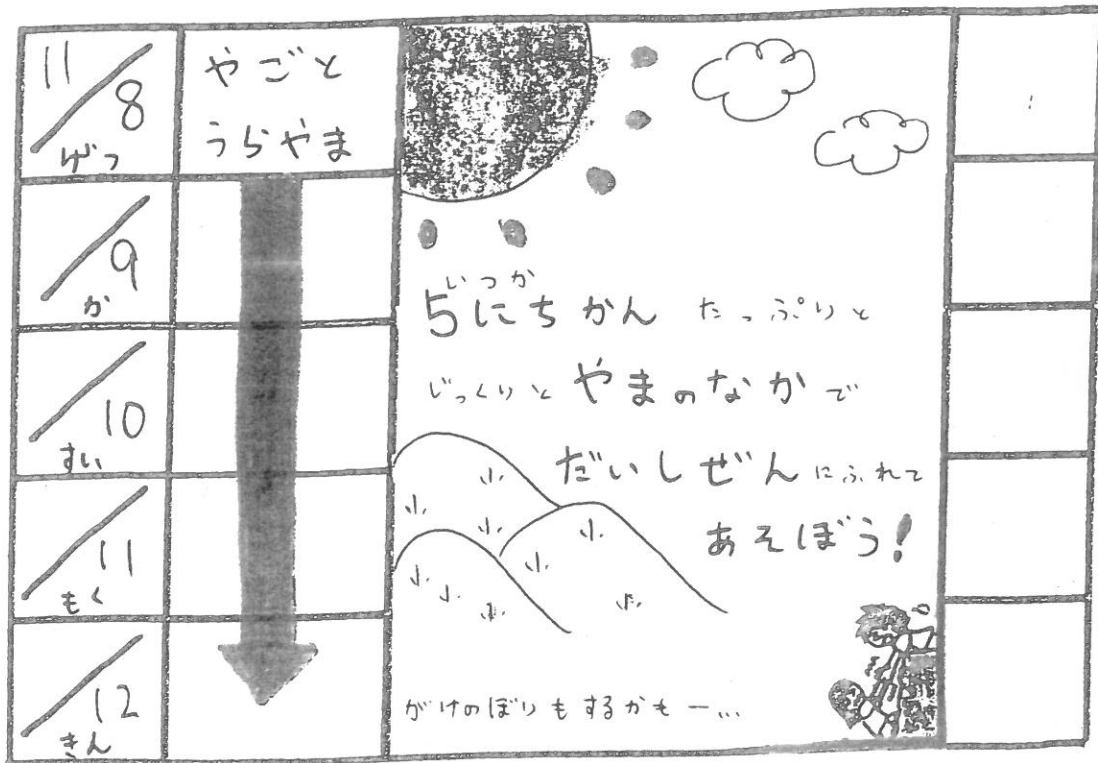 11/8
げつ
やごと
うらやま
9
か
10
すい
11
もく
12
きん
いつか
5にちかん たっぷりと
じっくりと やまのなかで
だいしぜんにふれて
あそぼう!
がけのぼりもするかもー...